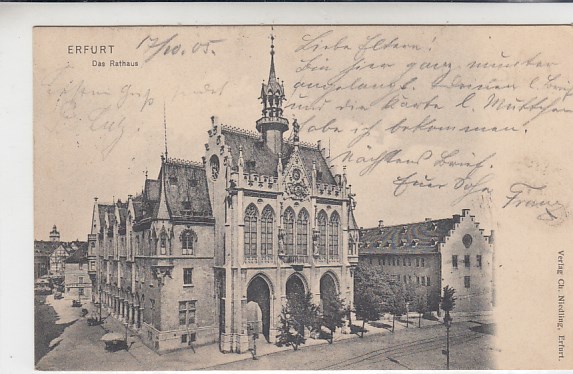 ERFURT
Das Rathaus
17/10. 05.
Liebe Eltern!
Bin hier ganz munter
angelangt. Deinen l. Brief
und die Karte l. Mütterchen
habe ich bekommen.
Nächstens Brief.
Euer Sohn
Franz
Verlag Ch. Niedling, Erfurt.